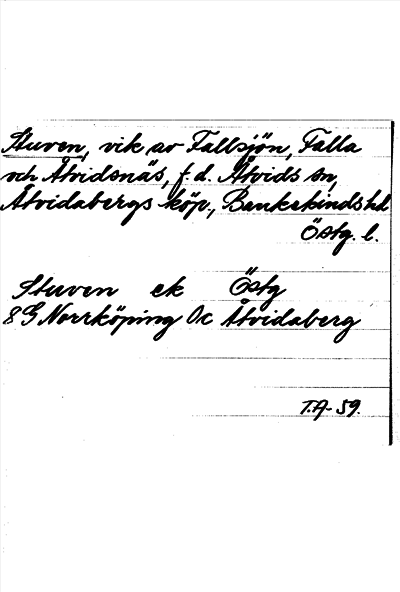 Stuven, vik av Fallsjön, Falla
och Åtvidsnäs, f.d. Åtvids sn,
Åtvidabergs köp., Bankekinds hd
Östg. l.
Stuven ek Östg
8G Norrköping Oc Åtvidaberg
T.A-59.